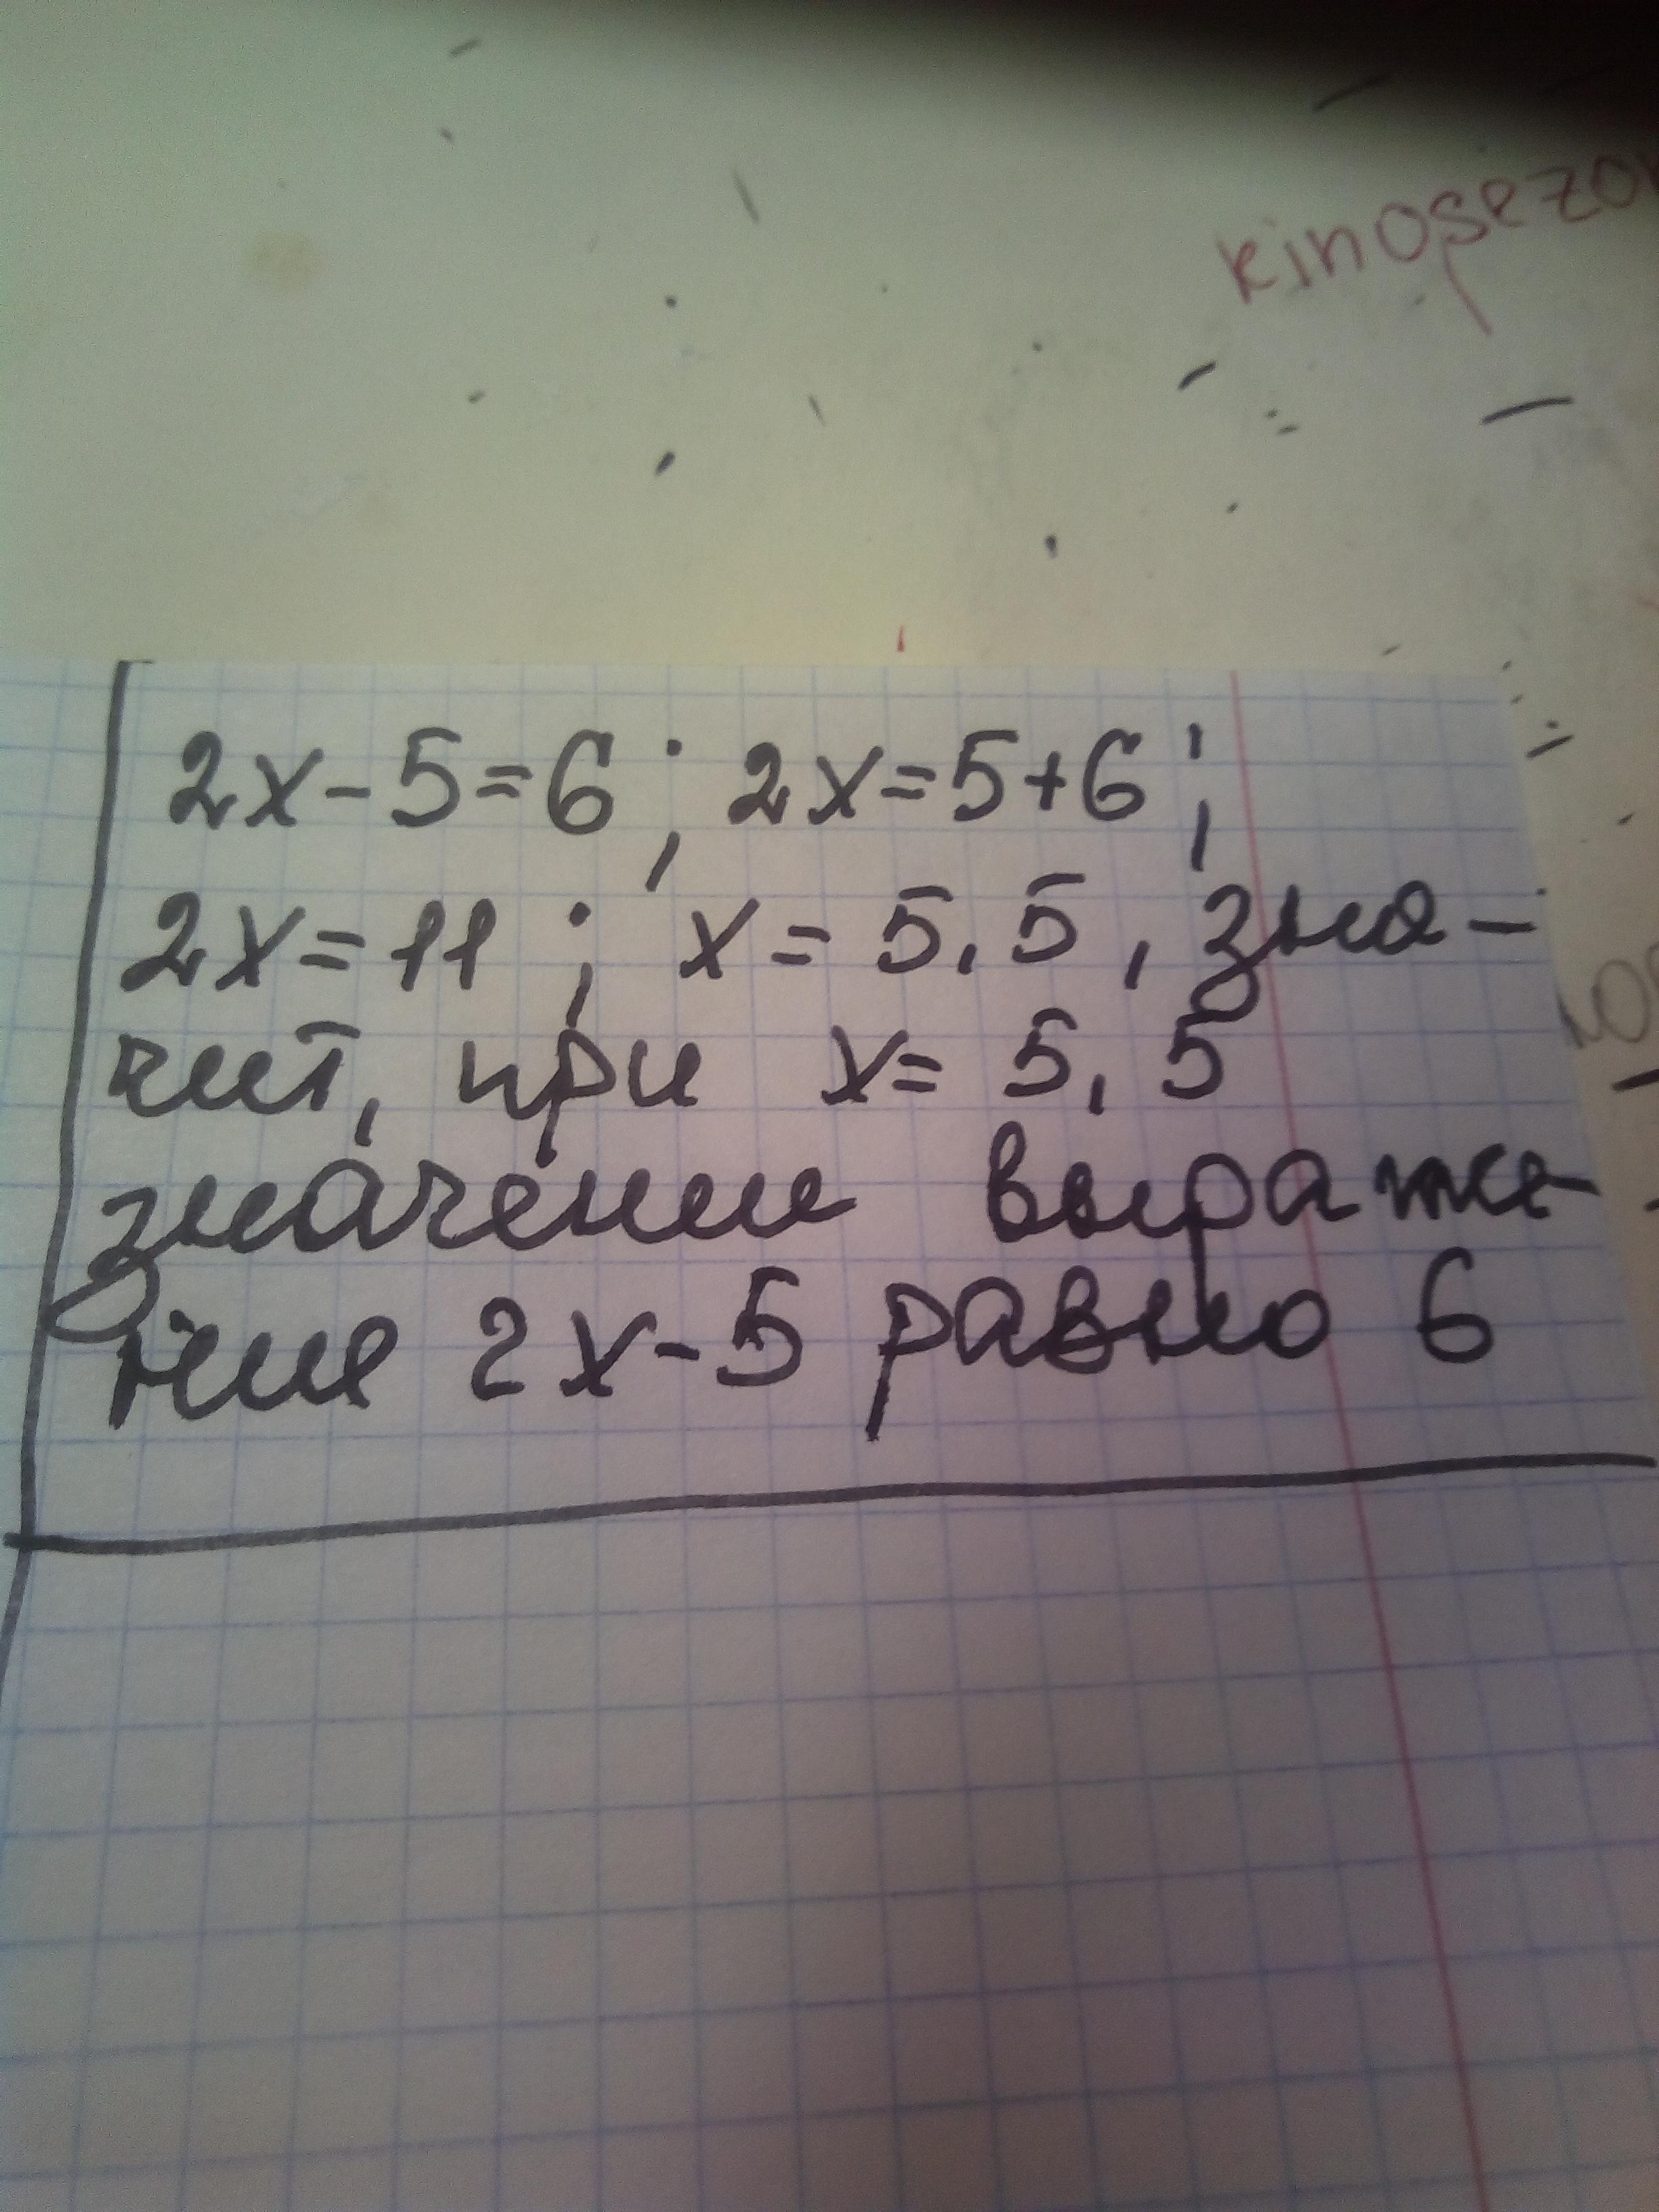 kinosezon
2x-5=6; 2x=5+6;
2x=11; x=5,5, зна-
чит, при x=5,5
значение выраже-
ние 2x-5 равно 6